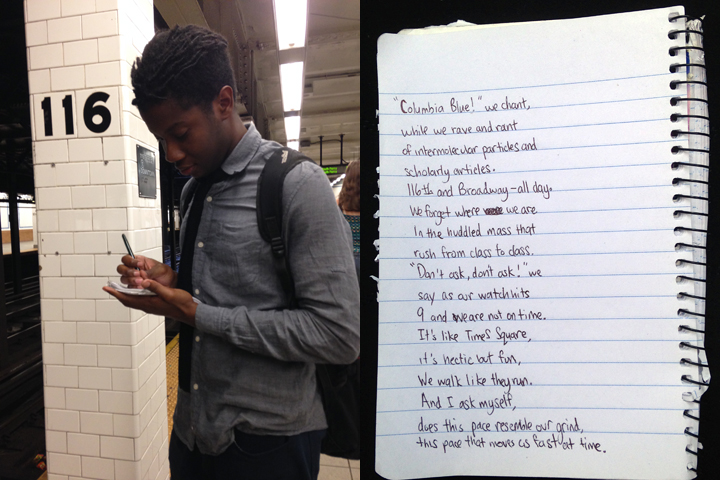 116
"Columbia Blue!" we chant,
while we rave and rant
of intermolecular particles and
scholarly articles.
116th and Broadway-all day.
We forget where we are
In the huddled mass that
rush from class to class.
"Don't ask, don't ask!" we
say as our watch hits
9 and we are not on time.
It's like Times Square,
it's hectic but fun,
We walk like they run.
And I ask myself,
does this pace resemble our grind,
this pace that moves as fast as time.